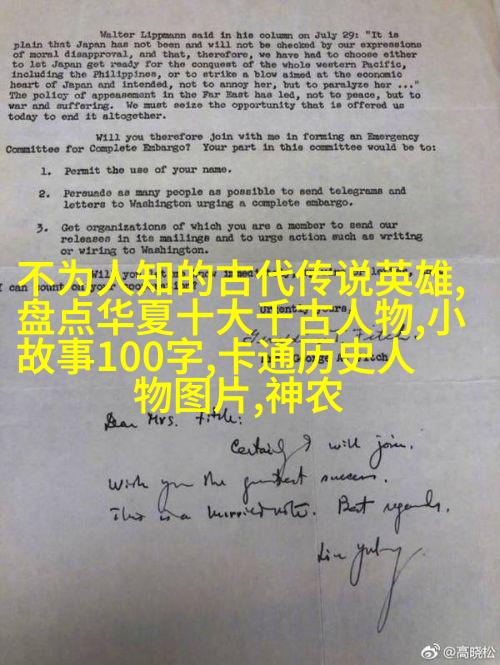 Walter Lippmann said in his column on July 29: "It is
plain that Japan has not been and will not be checked by our expressions
of moral disapproval, and that, therefore, we have had to choose either
to let Japan get ready for the conquest of the whole western Pacific,
including the Philippines, or to strike a blow aimed at the economic
heart of Japan and intended, not to annoy her, but to paralyze her ..."
The policy of appeasement in the Far East has led, not to peace, but to
war and suffering. We must seize the opportunity that is offered us
today to end it altogether.
Will you therefore join with me in forming an Emergency
Committee for Complete Embargo? Your part in this committee would be to:
1. Permit the use of your name.
2. Persuade as many people as possible to send telegrams and
letters to Washington urging a complete embargo.
3. Get organizations of which you are a member to send our
releases in its mailings and to urge action such as writing
or wiring to Washington.
不为人知的古代传说英雄,
盘点华夏十大千古人物,小
故事100字,卡通历史人
物图片,神农
Will you
can count on your
Urgently yours,
George A. Fitch
Dear Mrs. Fitch:
Certainly I will join.
Wish you the greatest success.
This is a hurried note. Best regards.
Lin Yutang
@高晓松